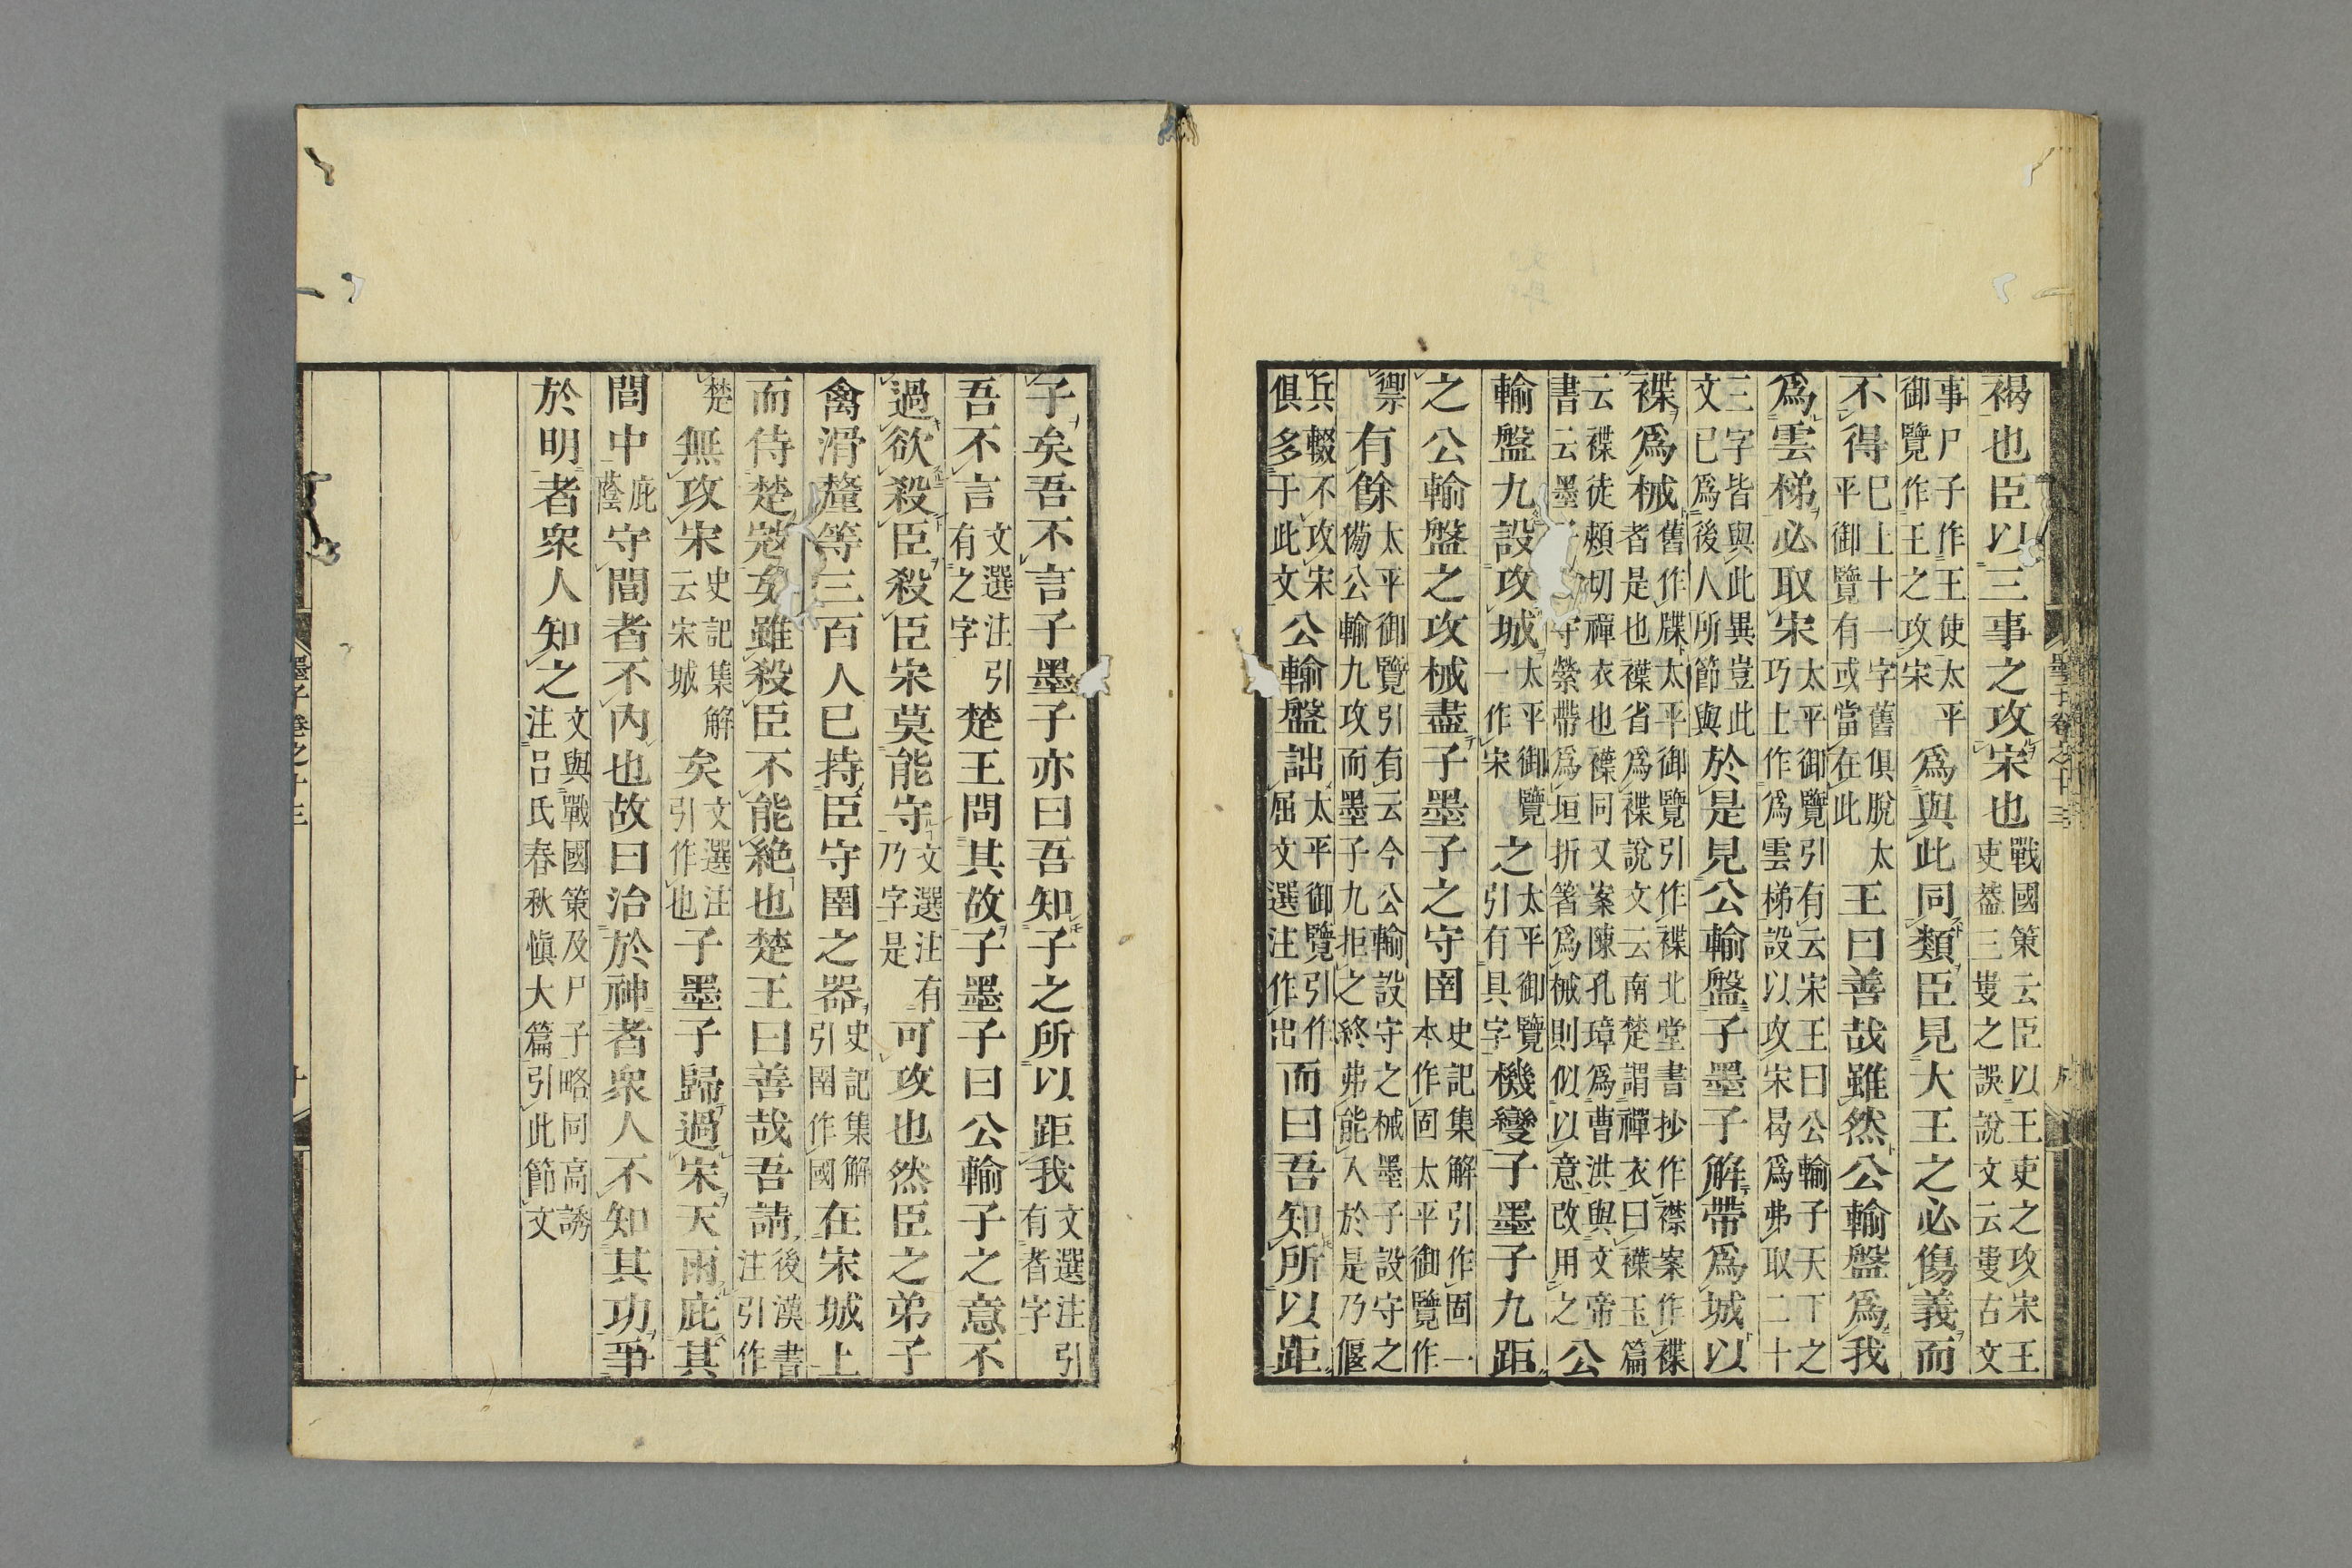 褐也臣以三事之攻宋也戰國策云臣以王吏之攻宋王吏葢三叓之誤說文云叓古文
事尸子作王使太平御覽作王之攻宋爲與此同類臣見大王之必傷義而
不得巳上十一字舊俱脫太平御覽有或當在此王曰善哉雖然公輸盤爲我
爲雲梯必取宋太平御覽引有云宋王曰公輸子天下之巧士作爲雲梯設以攻宋曷爲弗取二十
三字皆與此異豈此文已爲後人所節與於是見公輸盤子墨子解帶爲城以
褋爲械舊作牒太平御覽引作褋北堂書抄作襟案作褋者是也襟省爲褋說文云南楚謂禪衣曰襟玉篇
云褋徒頰切禪衣也襟同又案陳孔璋爲曹洪與文帝書云墨守縈帶爲垣折箸爲械則似以意改用之公
輸盤九設攻城太平御覽一作宋之太平御覽引有具字機變子墨子九距
之公輸盤之攻械盡子墨子之守圉史記集解引作固一本作固太平御覽作
禦有餘太平御覽引有云今公輸設守之械墨子設守之備公輸九攻而墨子九拒之終弗能入於是乃偃
兵輟不攻宋俱多于此文公輸盤詘太平御覽引作屈文選注作出而曰吾知所以距
子矣吾不言子墨子亦曰吾知子之所以距我文選注引有者字
吾不言文選注引有之字楚王問其故子墨子曰公輸子之意不
過欲殺臣殺臣宋莫能守文選注有乃字是可攻也然臣之弟子
禽滑釐等三百人已持臣守圉之器史記集解引圉作國在宋城上
而侍楚寇矣雖殺臣不能絕也楚王曰善哉吾請後漢書注引作
楚無攻宋史記集解云宋城矣文選注引作也子墨子歸過宋天雨庇其
閭中庇蔭守閭者不內也故曰治於神者衆人不知其功爭
於明者衆人知之文與戰國策及尸子略同高誘注呂氏春秋愼大篇引此節文
墨子卷之十三